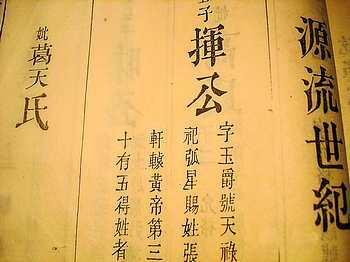 源流世紀
五子
揮公
字玉爵號天祿
祀弧星賜姓張
軒轅黃帝第三
十有五得姓者
妣葛天氏